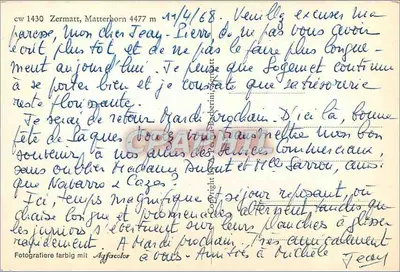 cw 1430 Zermatt, Matterhorn 4477 m 11/4/68. Veuillez excuser ma
paresse, mon cher Jean-Pierre, de ne pas vous avoir
écrit plus tôt, et de ne pas le faire plus longue-
ment aujourd'hui. Je pense que Sogemet continue
à se porter bien et je constate que sa trésorerie
reste florissante.
Je serai de retour Mardi prochain. D'ici là, bonne
fête de Pâques. Vous transmettre mes bons
souvenirs à nos amis des services commerciaux,
sans oublier Madame et Mlle Sarron, ainsi
que Navarro et Cazes.
Ici, temps magnifique, séjour reposant, où
chaise longue et promenades alternent tandis que
les juniors s'évertuent sur leurs planches à glisser
rapidement. A Mardi prochain. Très amicalement
à vous. Amitiés à Michèle
Jean
Fotografiere farbig mit Agfacolor